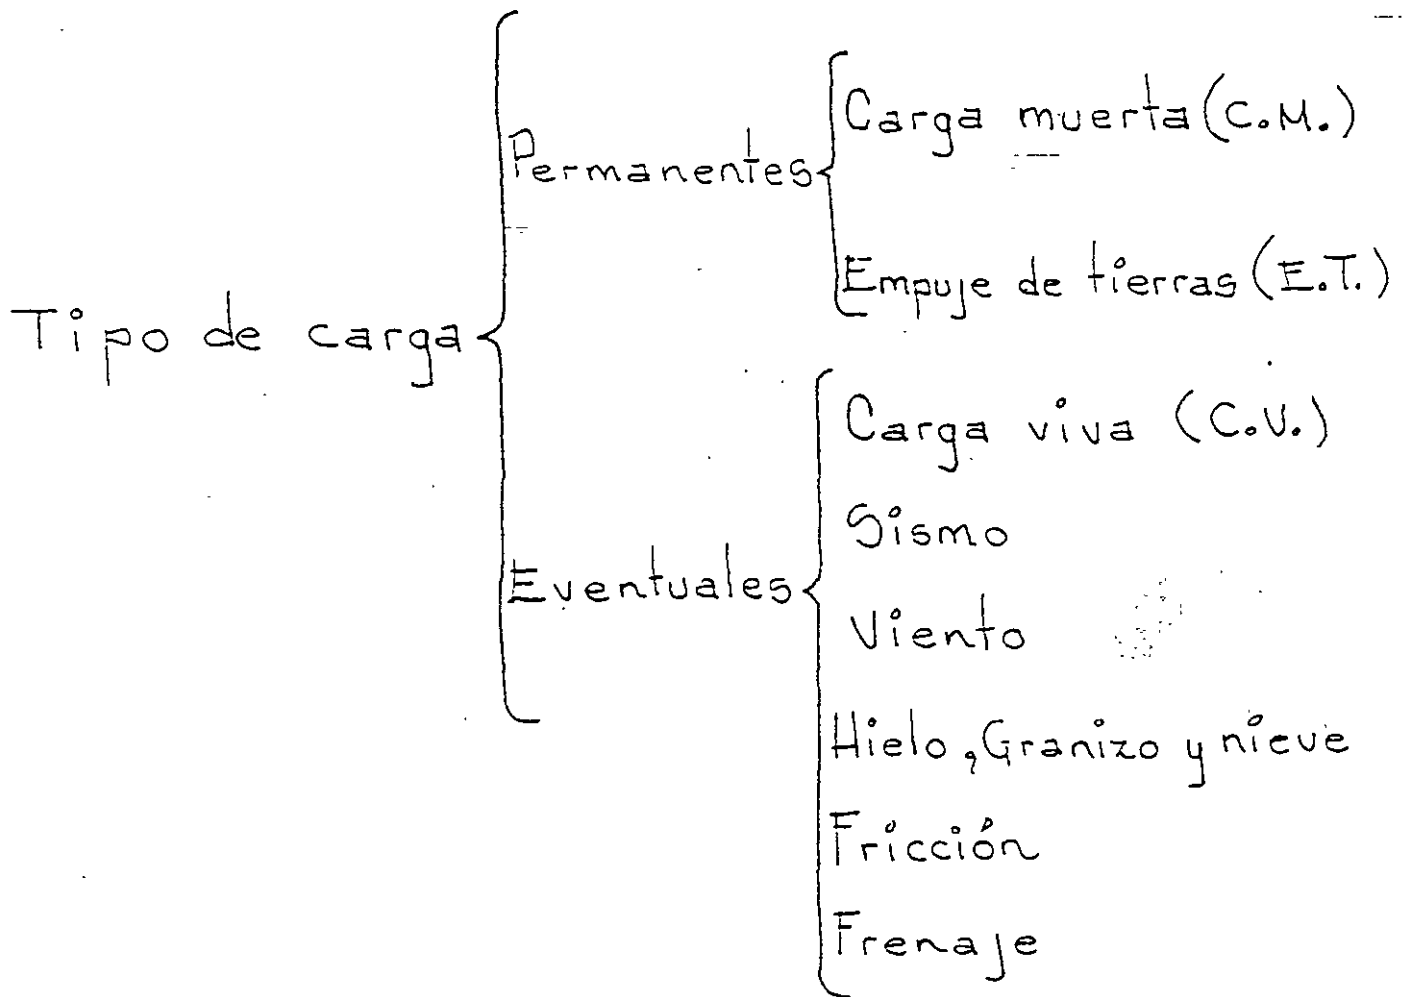 Tipo de carga
Permanentes
Carga muerta (C.M.)
Empuje de tierras (E.T.)
Eventuales
Carga viva (C.V.)
Sismo
Viento
Hielo, Granizo y nieve
Fricción
Frenaje